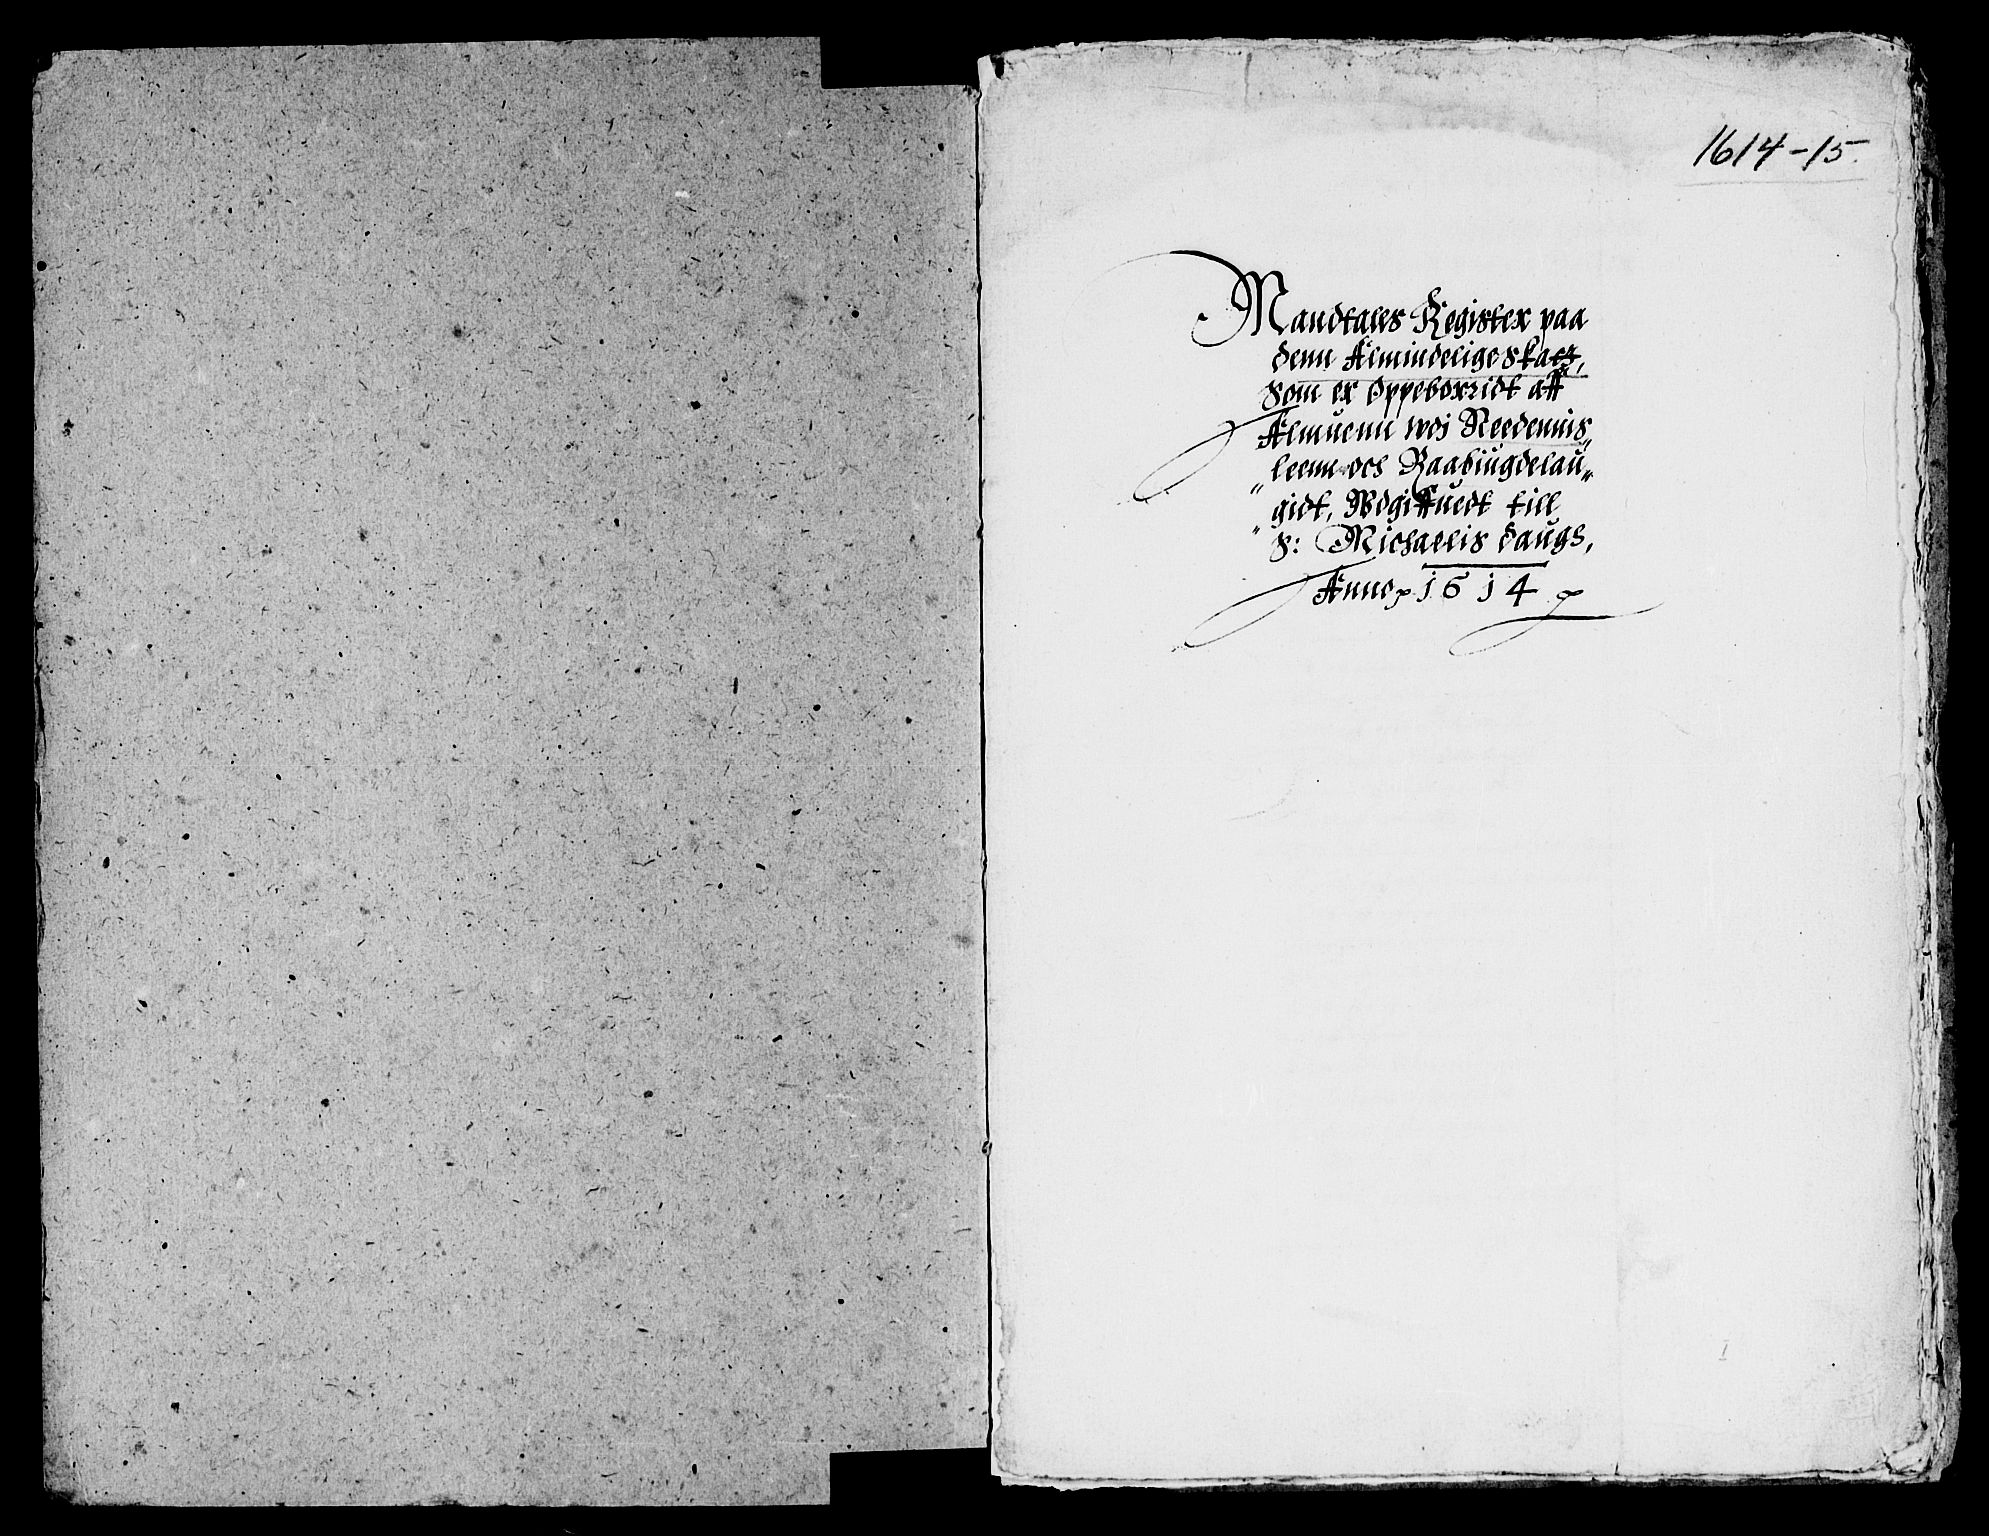 1614-15.
Mandtales Register paa
denn Almindelige skatt,
som er Oppeborridt aff
Almuenn wdj Needennis
leenn och Raabiugdelau„
„gidt, Wdgiffuedt till
„S: Michaelis daugs,
Anno 1614
1